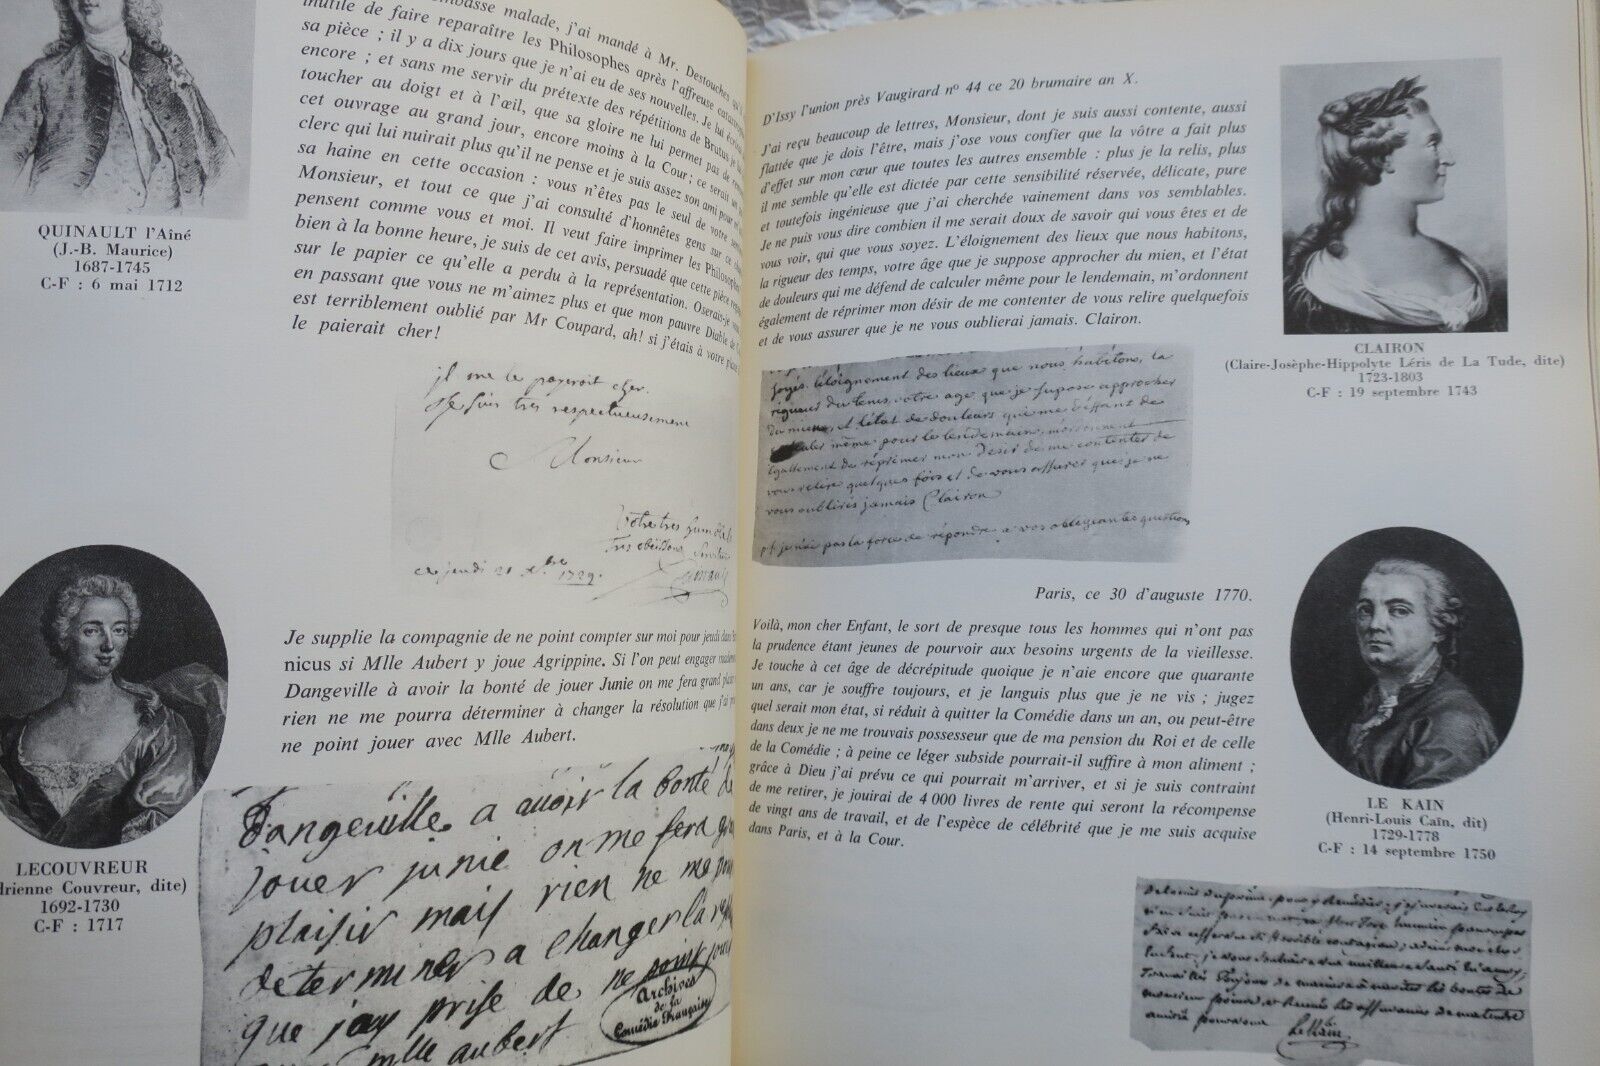 mbasse malade, j'ai mandé à Mr. Destouches qu'il
inutile de faire reparaître les Philosophes après l'affreuse
sa pièce ; il y a dix jours que je n'ai eu de ses nouvelles. Je lui
encore ; et sans me servir du prétexte des répétitions de Brutus je
toucher au doigt et à l'œil, que sa gloire ne lui permet pas de
cet ouvrage au grand jour, encore moins à la Cour ; ce serait un
clerc qui lui nuirait plus qu'il ne pense et je suis assez son ami pour
sa haine en cette occasion : vous n'êtes pas le seul de votre
Monsieur, et tout ce que j'ai consulté d'honnêtes gens sur ce
pensent comme vous et moi. Il veut faire imprimer les Philosophes
bien à la bonne heure, je suis de cet avis, persuadé que cette pièce
sur le papier ce qu'elle a perdu à la représentation. Oserais-je
en passant que vous ne m'aimez plus et que mon pauvre Diable de
est terriblement oublié par Mr Coupard, ah! si j'étais à votre place
le paierait cher!
QUINAULT l'Aîné
(J.-B. Maurice)
1687-1745
C-F : 6 mai 1712
jl me le payeroit cher.
Je suis tres respectueusement
Monsieur
Votre tres humble &
tres obeissant
ce jeudi 21 xbre 1729.
Je supplie la compagnie de ne point compter sur moi pour jeudi dans
nicus si Mlle Aubert y joue Agrippine. Si l'on peut engager
Dangeville à avoir la bonté de jouer Junie on me fera grand
rien ne me pourra déterminer à changer la résolution que j'ai
ne point jouer avec Mlle Aubert.
LECOUVREUR
drienne Couvreur, dite)
1692-1730
C-F : 1717
Dangeville a avoir la bonté de
jouer junie on me fera
plaisir mais rien ne me
determiner a changer la
que jay prise de ne point
mlle aubert
Archives
de la
Comédie Française
D'Issy l'union près Vaugirard nº 44 ce 20 brumaire an X.
J'ai reçu beaucoup de lettres, Monsieur, dont je suis aussi contente, aussi
flattée que je dois l'être, mais j'ose vous confier que la vôtre a fait plus
d'effet sur mon cœur que toutes les autres ensemble : plus je la relis, plus
il me semble qu'elle est dictée par cette sensibilité réservée, délicate, pure
et toutefois ingénieuse que j'ai cherchée vainement dans vos semblables.
Je ne puis vous dire combien il me serait doux de savoir qui vous êtes et de
vous voir, qui que vous soyez. L'éloignement des lieux que nous habitons,
la rigueur des temps, votre âge que je suppose approcher du mien, et l'état
de douleurs qui me défend de calculer même pour le lendemain, m'ordonnent
également de réprimer mon désir de me contenter de vous relire quelquefois
et de vous assurer que je ne vous oublierai jamais. Clairon.
CLAIRON
(Claire-Josèphe-Hippolyte Léris de La Tude, dite)
1723-1803
C-F : 19 septembre 1743
soyés. l'éloignement des lieux que nous habitons, la
rigueur du tems, votre age que je supose approcher
du mien, et l'état de douleurs qui me deffant de
calculer même pour le lendemain, m'ordonnent
égallement de réprimer mon désir de me contenter de
vous relire quelques fois et de vous assurer que je ne
vous oublirés jamais Clairon
ps. je n'ai pas la force de répondre a vos obligeantes questions
Paris, ce 30 d'auguste 1770.
Voilà, mon cher Enfant, le sort de presque tous les hommes qui n'ont pas
la prudence étant jeunes de pourvoir aux besoins urgents de la vieillesse.
Je touche à cet âge de décrépitude quoique je n'aie encore que quarante
un ans, car je souffre toujours, et je languis plus que je ne vis ; jugez
quel serait mon état, si réduit à quitter la Comédie dans un an, ou peut-être
dans deux je ne me trouvais possesseur que de ma pension du Roi et de celle
de la Comédie ; à peine ce léger subside pourrait-il suffire à mon aliment ;
grâce à Dieu j'ai prévu ce qui pourrait m'arriver, et si je suis contraint
de me retirer, je jouirai de 4 000 livres de rente qui seront la récompense
de vingt ans de travail, et de l'espèce de célébrité que je me suis acquise
dans Paris, et à la Cour.
LE KAIN
(Henri-Louis Caïn, dit)
1729-1778
C-F : 14 septembre 1750
amitié
LeKain